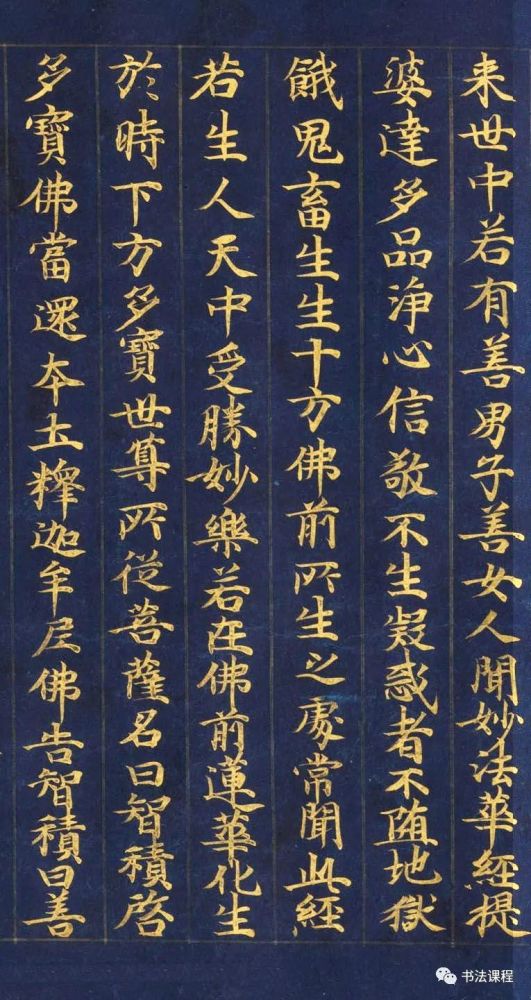 来世中若有善男子善女人聞妙法華經提
婆達多品淨心信敬不生疑惑者不墮地獄
餓鬼畜生生十方佛前所生之處常聞此經
若生人天中受勝妙樂若在佛前蓮華化生
於時下方多寶世尊所從菩薩名曰智積啓
多寶佛當還本土釋迦牟尼佛告智積曰善
书法课程